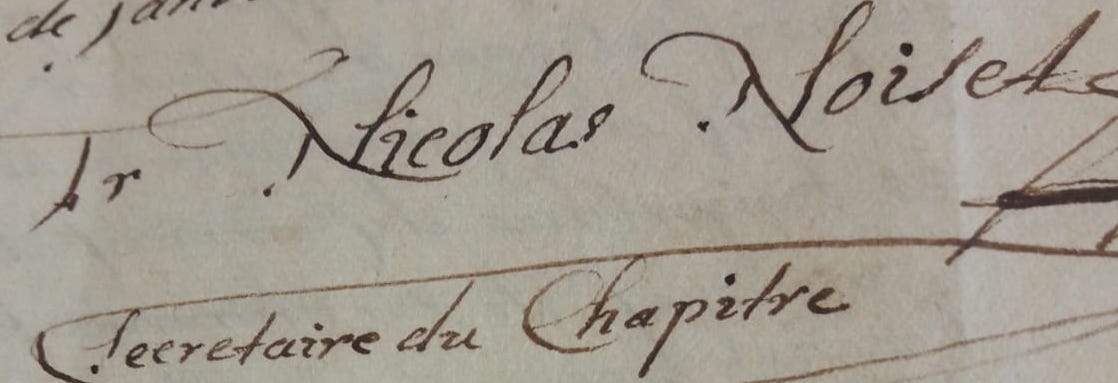 de janv
fr Nicolas Noiset
Secretaire du Chapitre